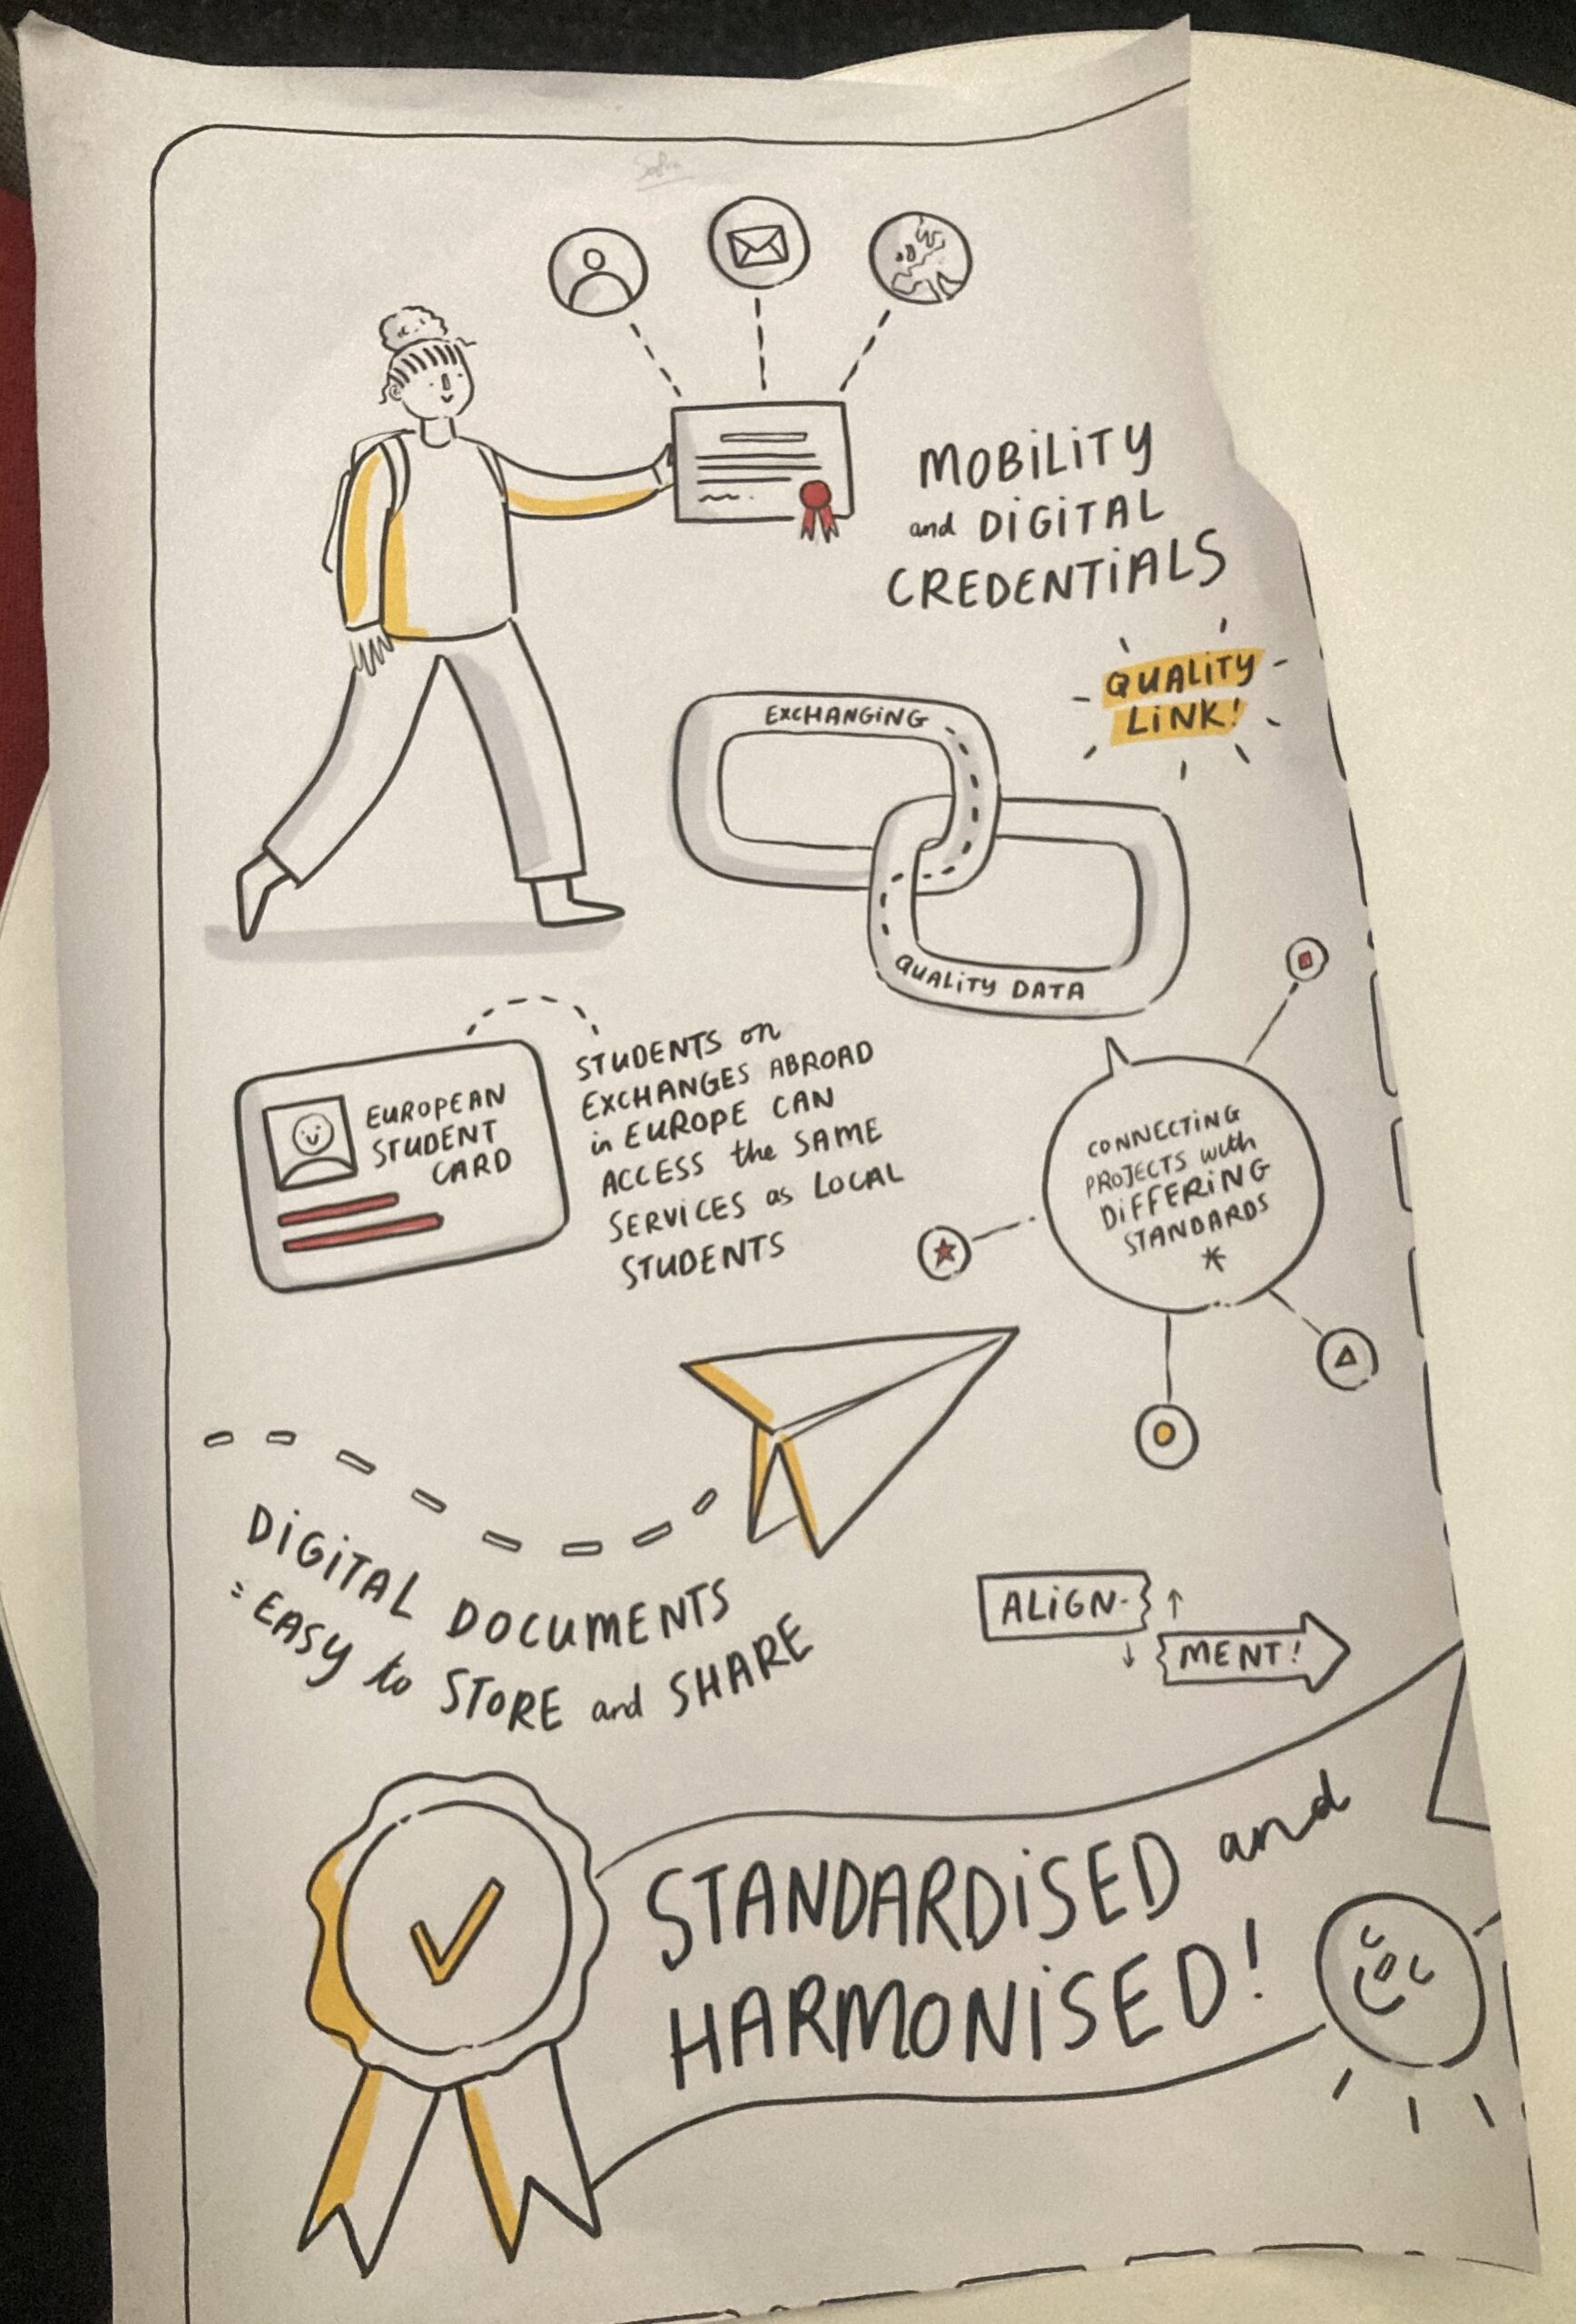 MOBILITY
and DIGITAL
CREDENTIALS
QUALITY
LINK!
EXCHANGING
QUALITY DATA
EUROPEAN
STUDENT
CARD
STUDENTS on
EXCHANGES ABROAD
in EUROPE CAN
ACCESS the SAME
SERVICES as LOCAL
STUDENTS
CONNECTING
PROJECTS with
DIFFERING
STANDARDS
*
DIGITAL DOCUMENTS
= EASY to STORE and SHARE
ALIGN-
MENT!
STANDARDISED and
HARMONISED!